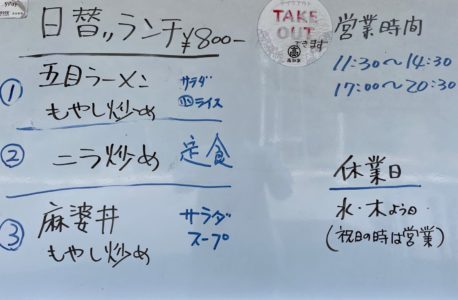 日替りランチ ¥800-
① 五目ラーメン サラダ
もやし炒め 四ライス
② ニラ炒め 定食
③ 麻婆丼 サラダ
もやし炒め スープ
TAKE
OUT
できます
営業時間
11:30〜14:30
17:00〜20:30
休業日
水・木よう日
(祝日の時は営業)